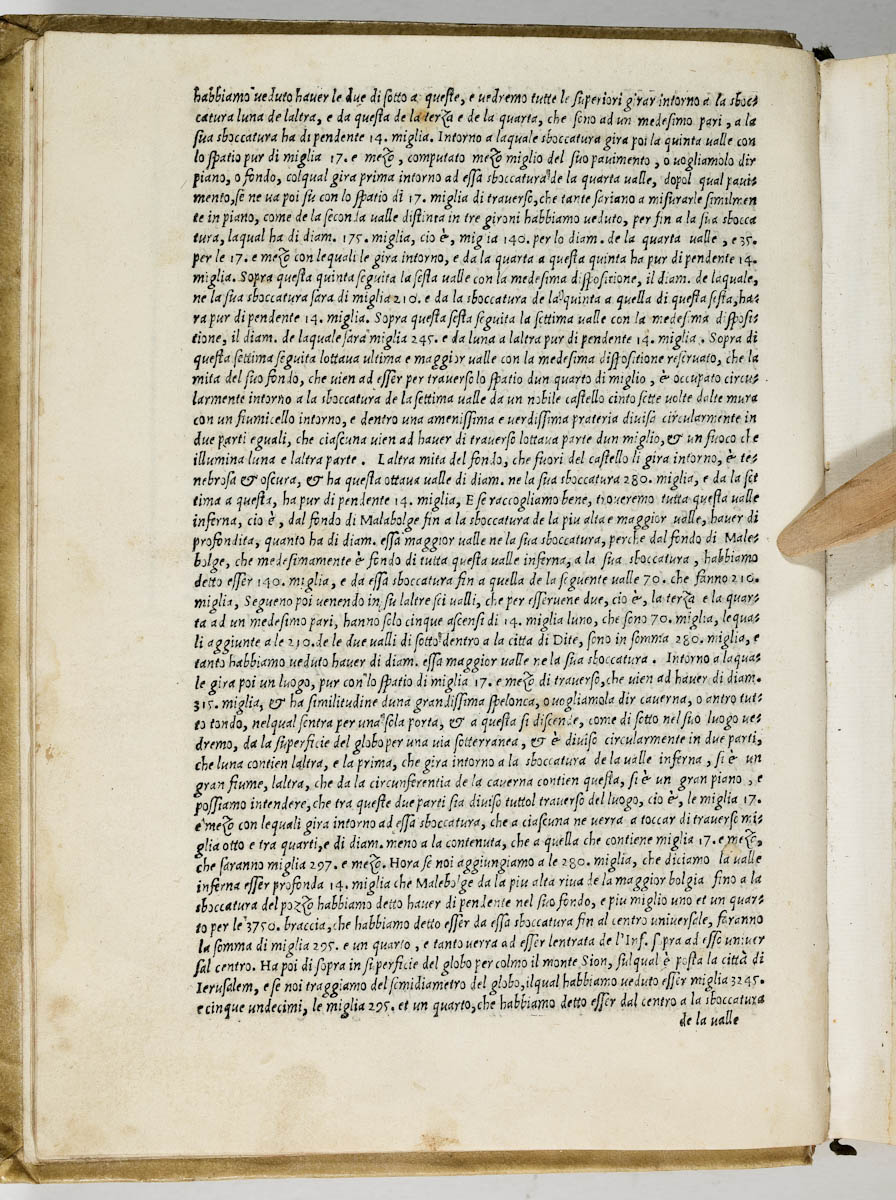 habbiamo veduto haver le due di sotto a queste, e vedremo tutte le superiori girar intorno a la sboc⸗
catura luna de laltra, e da questa de la terza e de la quarta, che sono ad un medesimo pari, a la
sua sboccatura ha di pendente 14. miglia. Intorno a laquale sboccatura gira poi la quinta valle con
lo spatio pur di miglia 17. e mezo, computato mezo miglio del suo pavimento, o vogliamolo dir
piano, o fondo, colqual gira prima intorno ad essa sboccatura de la quarta valle, dopol qual pavi⸗
mento, se ne va poi su con lo spatio di 17. miglia di traverso, che tante sariano a misurarle similmen
te in piano, come de la seconda valle distinta in tre gironi habbiamo veduto, per fin a la sua sbocca
tura, laqual ha di diam. 175. miglia, cio è, mig ia 140. per lo diam. de la quarta valle, e 35.
per le 17. e mezo con lequali le gira intorno, e da la quarta a questa quinta ha pur di pendente 14.
miglia. Sopra questa quinta seguita la sesta valle con la medesima dispositione, il diam. de laquale,
ne la sua sboccatura sara di miglia 210. e da la sboccatura de la quinta a quella di questa sesta, ha⸗
ra pur di pendente 14. miglia. Sopra questa sesta seguita la settima valle con la medesima disposi⸗
tione, il diam. de laquale sara miglia 245. e da luna a laltra pur di pendente 14. miglia. Sopra di
questa settima seguita lottava ultima e maggior valle con la medesima dispositione reservato, che la
mita del suo fondo, che vien ad esser per traverso lo spatio dun quarto di miglio, è occupato circu⸗
larmente intorno a la sboccatura de la settima valle da un nobile castello cinto sette volte dalte mura
con un fiumicello intorno, e dentro una amenissima e verdissima prateria divisa circularmente in
due parti eguali, che ciascuna vien ad haver di traverso lottava parte dun miglio, & un fuoco che
illumina luna e laltra parte. Laltra mita del fondo, che fuori del castello li gira intorno, è te⸗
nebrosa & oscura, & ha questa ottava valle di diam. ne la sua sboccatura 280. miglia, e da la set
tima a questa, ha pur di pendente 14. miglia, E se raccogliamo bene, troveremo tutta questa valle
inferna, cio è, dal fondo di Malabolge fin a la sboccatura de la piu alta e maggior valle, haver di
profondita, quanto ha di diam. essa maggior valle ne la sua sboccatura, perche dal fondo di Male⸗
bolge, che medesimamente è fondo di tutta questa valle inferna, a la sua sboccatura, habbiamo
detto esser 140. miglia, e da essa sboccatura fin a quella de la seguente valle 70. che fanno 210.
miglia, Segueno poi venendo in su laltre sei valli, che per esservene due, cio è, la terza e la quar⸗
ta ad un medesimo pari, hanno solo cinque ascensi di 14. miglia luno, che sono 70. miglia, lequa⸗
li aggiunte a le 210. de le due valli di sotto dentro a la citta di Dite, sono in somma 280. miglia, e
tanto habbiamo veduto haver di diam. essa maggior valle ne la sua sboccatura. Intorno a la qua⸗
le gira poi un luogo, pur con lo spatio di miglia 17. e mezo di traverso, che vien ad haver di diam.
315. miglia, & ha similitudine duna grandissima spelonca, o vogliamola dir caverna, o antro tut⸗
to tondo, nelqual sentra per una sola porta, & a questa si discende, come di sotto nel suo luogo ve⸗
dremo, da la superficie del globo per una via sotterranea, & è diviso circularmente in due parti,
che luna contien laltra, e la prima, che gira intorno a la sboccatura de la valle inferna, si è un
gran fiume, laltra, che da la circunferentia de la caverna contien questa, si è un gran piano, e
possiamo intendere, che tra queste due parti sia diviso tuttol traverso del luogo, cio è, le miglia 17.
e mezo con lequali gira intorno ad essa sboccatura, che a ciascuna ne verra a toccar di traverso mi⸗
glia otto e tra quarti, e di diam. meno a la contenuta, che a quella che contiene miglia 17. e mezo,
che saranno miglia 297. e mezo. Hora se noi aggiungiamo a le 280. miglia, che diciamo la valle
inferna esser profonda 14. miglia che Malebolge da la piu alta riva de la maggior bolgia fino a la
sboccatura del pozzo habbiamo detto haver di pendente nel suo fondo, e piu miglio uno et un quar⸗
to per le 3750. braccia, che habbiamo detto esser da essa sboccatura fin al centro universale, faranno
la somma di miglia 295. e un quarto, e tanto verra ad esser lentrata de l'Inf. sopra ad esso univer
sal centro. Ha poi di sopra in superficie del globo per colmo il monte Sion, sulqual è posta la città di
Ierusalem, e se noi traggiamo del semidiametro del globo, ilqual habbiamo veduto esser miglia 3245.
e cinque undecimi, le miglia 295. et un quarto, che habbiamo detto esser dal centro a la sboccatura
de la valle